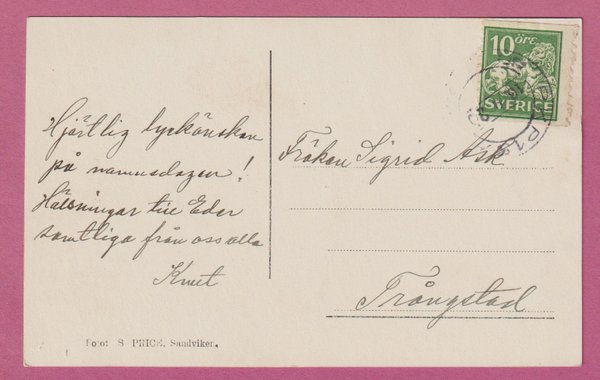 Hjärtlig lyckönskan
på namnsdagen!
Hälsningar till Eder
samtliga från oss alla
Knut
Foto: S PRICE, Sandviken.
10 öre
SVERIGE
Fröken Sigrid Ask
Trångstad